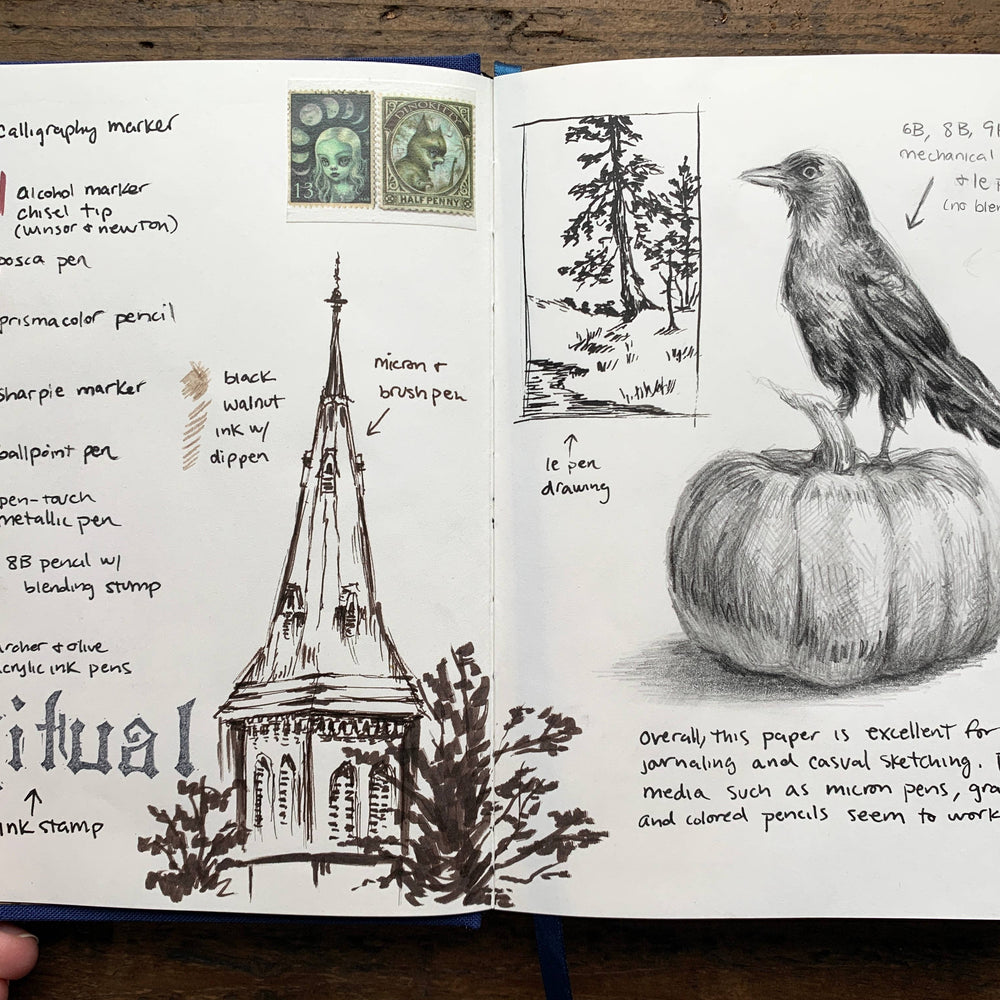 calligraphy marker
alcohol marker
chisel tip
(winsor & newton)
posca pen
prismacolor pencil
sharpie marker
ballpoint pen
pen-touch
metallic pen
8B pencil w/
blending stump
archer & olive
acrylic ink pens
ritual
ink stamp
13
DINOKITTY
HALF PENNY
black
walnut
ink w/
dip pen
micron +
brush pen
le pen
drawing
6B, 8B,
mechanical
+ le
(no
Overall, this paper is excellent for
jornaling and casual sketching.
media such as micron pens,
and colored pencils seem to work